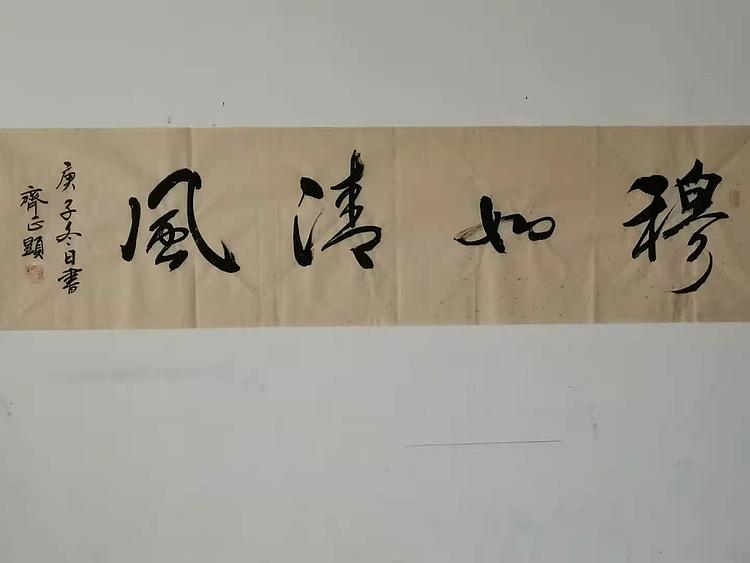 穆如清風
庚子冬日書
齊正顯